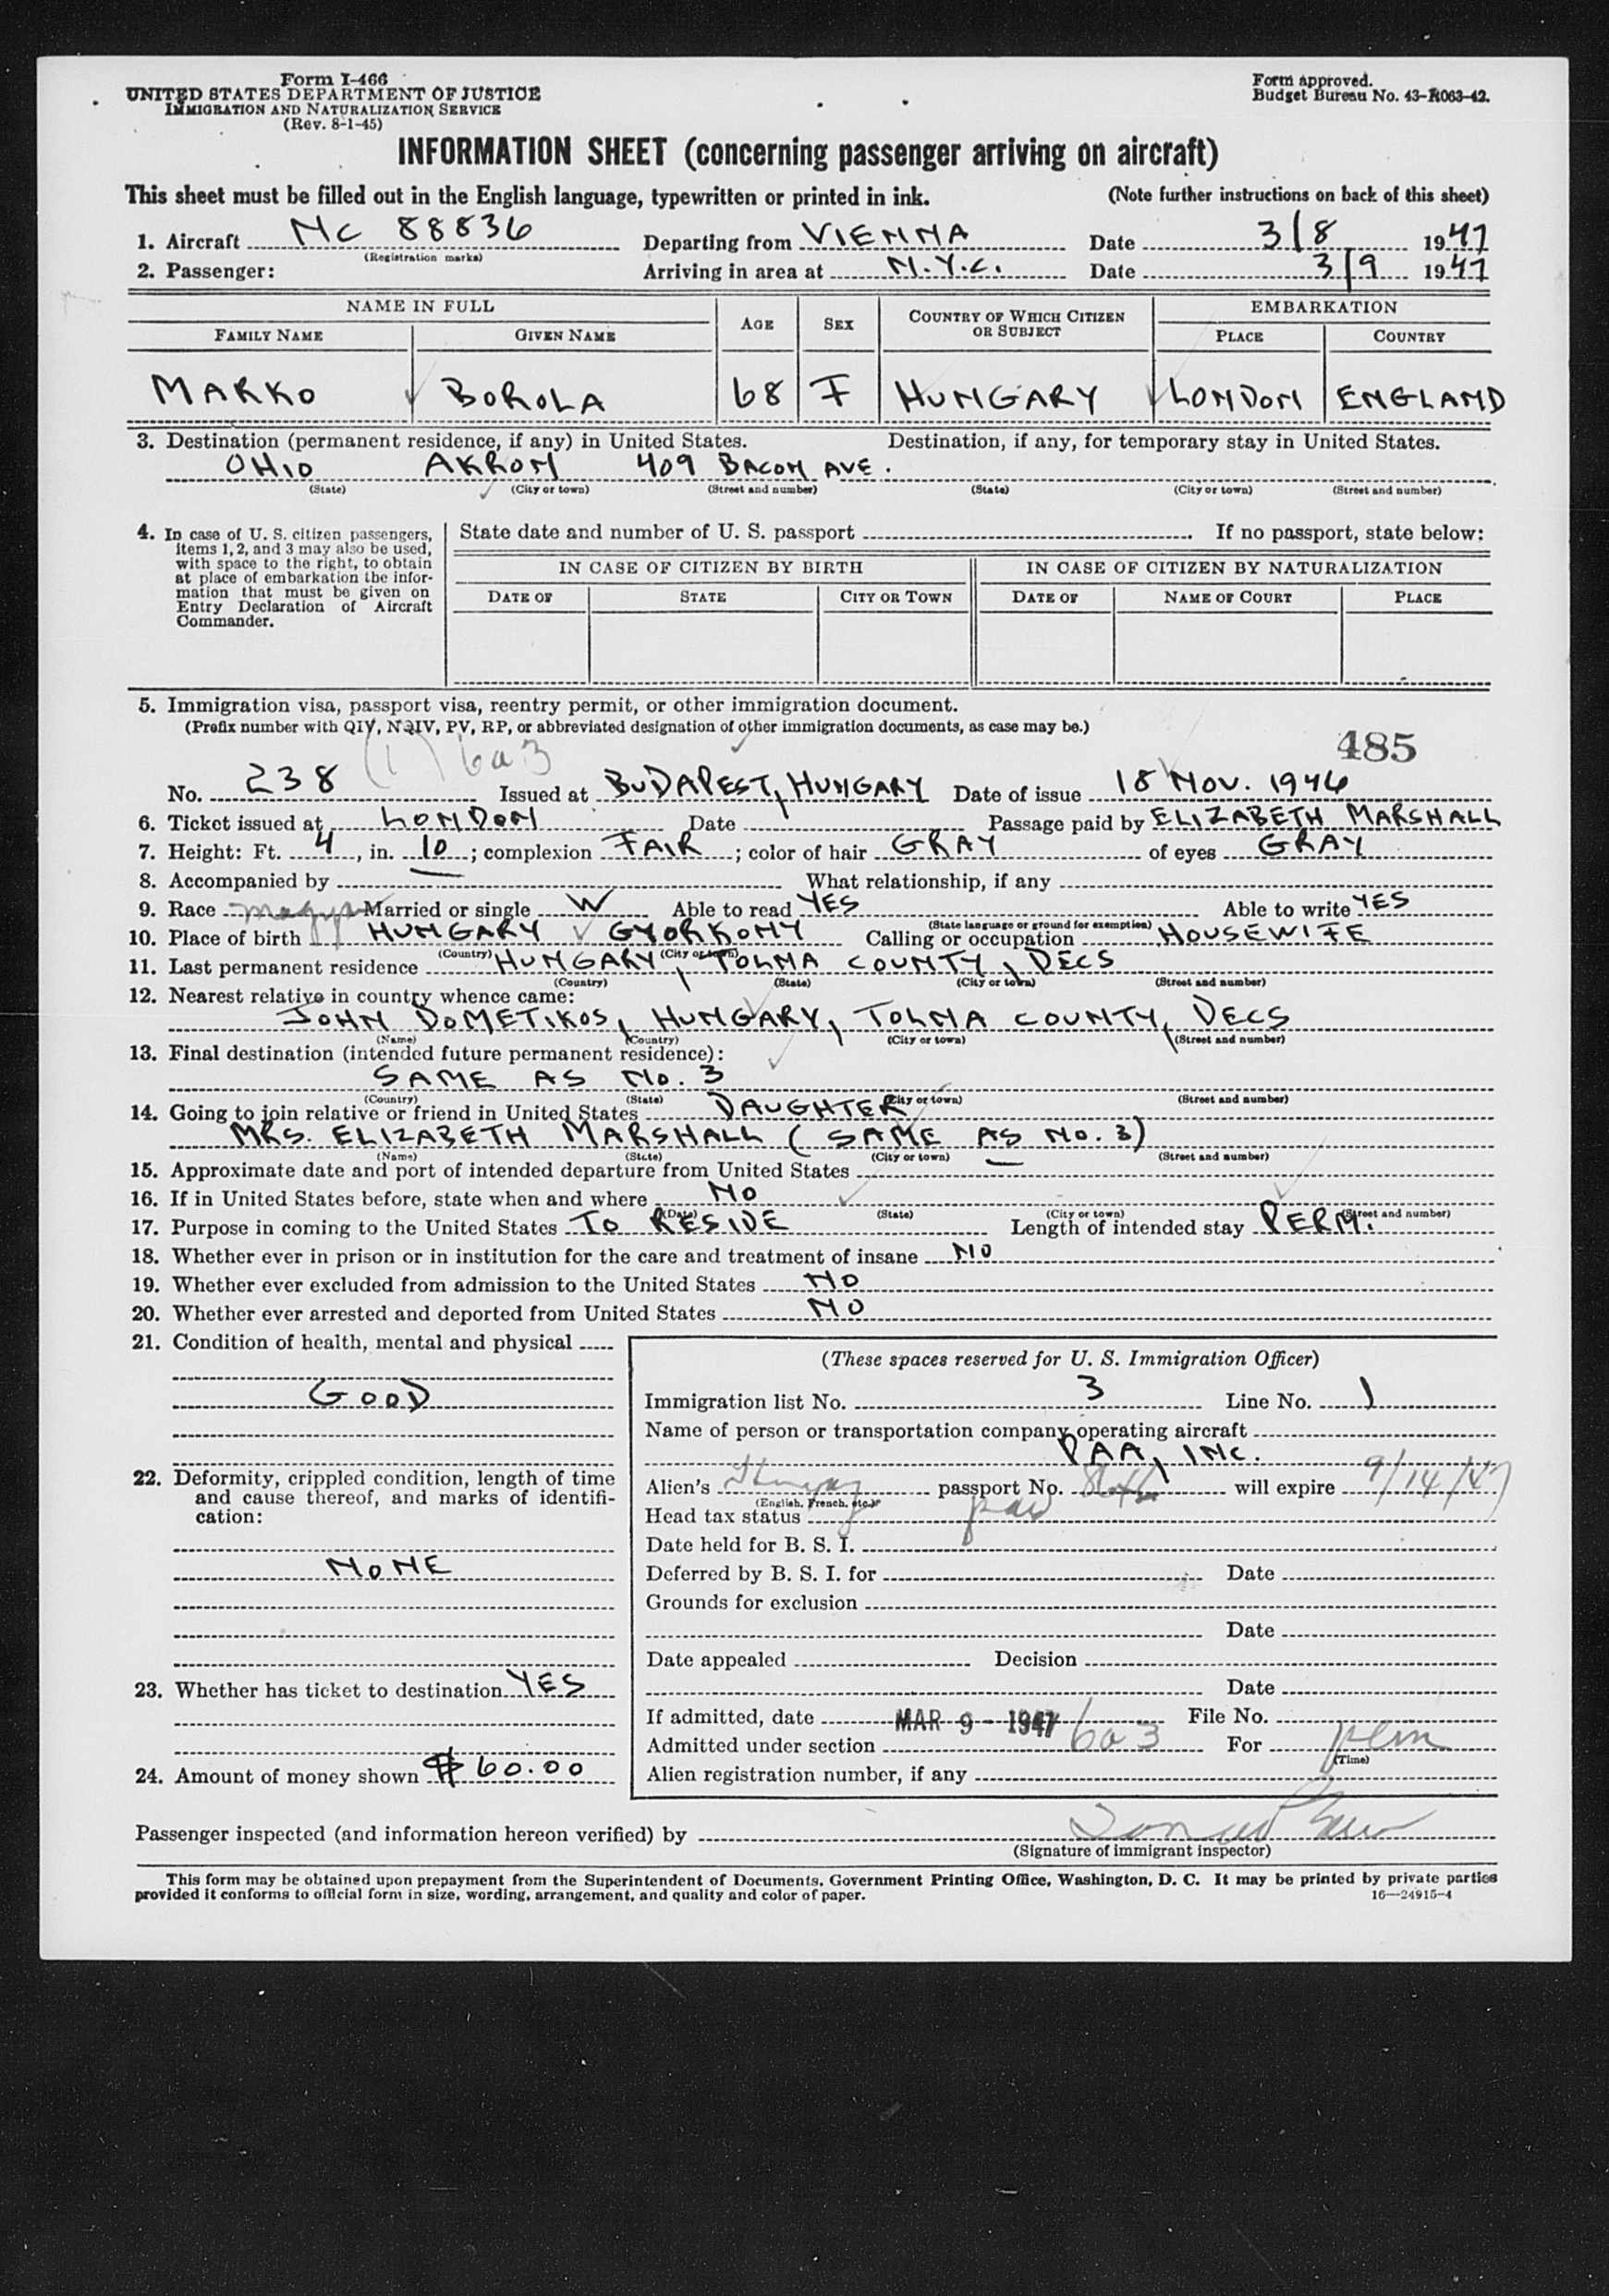 Form I-466
UNITED STATES DEPARTMENT OF JUSTICE
IMMIGRATION AND NATURALIZATION SERVICE
(Rev. 8-1-45)
Form approved.
Budget Bureau No. 43-R063-42.
INFORMATION SHEET (concerning passenger arriving on aircraft)
This sheet must be filled out in the English language, typewritten or printed in ink. (Note further instructions on back of this sheet)
1. Aircraft NC 88836 Departing from VIENNA Date 3/8 1947
(Registration marks)
2. Passenger: Arriving in area at N.Y.C. Date 3/9 1947
NAME IN FULL AGE SEX COUNTRY OF WHICH CITIZEN OR SUBJECT EMBARKATION
FAMILY NAME GIVEN NAME PLACE COUNTRY
MARKO BOROLA 68 F HUNGARY LONDON ENGLAND
3. Destination (permanent residence, if any) in United States. Destination, if any, for temporary stay in United States.
OHIO AKRON 409 BACON AVE.
(State) (City or town) (Street and number) (State) (City or town) (Street and number)
4. In case of U. S. citizen passengers, items 1, 2, and 3 may also be used, with space to the right, to obtain at place of embarkation the information that must be given on Entry Declaration of Aircraft Commander.
State date and number of U. S. passport If no passport, state below:
IN CASE OF CITIZEN BY BIRTH IN CASE OF CITIZEN BY NATURALIZATION
DATE OF STATE CITY OR TOWN DATE OF NAME OF COURT PLACE
5. Immigration visa, passport visa, reentry permit, or other immigration document.
(Prefix number with QIV, NQIV, PV, RP, or abbreviated designation of other immigration documents, as case may be.)
(1) 6a3 485
No. 238 Issued at BUDAPEST, HUNGARY Date of issue 18 NOV. 1946
6. Ticket issued at LONDON Date Passage paid by ELIZABETH MARSHALL
7. Height: Ft. 4, in. 10; complexion FAIR; color of hair GRAY of eyes GRAY
8. Accompanied by — What relationship, if any
9. Race Married or single W Able to read YES Able to write YES
(State language or ground for exemption)
10. Place of birth HUNGARY GYORKONY Calling or occupation HOUSEWIFE
(Country) (City or town)
11. Last permanent residence HUNGARY, TOLNA COUNTY, DECS
(Country) (State) (City or town) (Street and number)
12. Nearest relative in country whence came:
JOHN DOMETIKOS, HUNGARY, TOLNA COUNTY, DECS
(Name) (Country) (City or town) (Street and number)
13. Final destination (intended future permanent residence):
SAME AS NO. 3
(Country) (State) (City or town) (Street and number)
14. Going to join relative or friend in United States DAUGHTER
MRS. ELIZABETH MARSHALL (SAME AS NO. 3)
(Name) (State) (City or town) (Street and number)
15. Approximate date and port of intended departure from United States —
16. If in United States before, state when and where NO
(Date) (State) (City or town) (Street and number)
17. Purpose in coming to the United States TO RESIDE Length of intended stay PERM.
18. Whether ever in prison or in institution for the care and treatment of insane NO
19. Whether ever excluded from admission to the United States NO
20. Whether ever arrested and deported from United States NO
21. Condition of health, mental and physical
GOOD
22. Deformity, crippled condition, length of time and cause thereof, and marks of identification:
NONE
23. Whether has ticket to destination YES
24. Amount of money shown $60.00
(These spaces reserved for U. S. Immigration Officer)
Immigration list No. 3 Line No. 1
Name of person or transportation company operating aircraft
PAA, INC.
Alien's passport No. will expire 9/14/47
(English, French, etc.)
Head tax status
Date held for B. S. I.
Deferred by B. S. I. for Date
Grounds for exclusion
Date
Date appealed Decision
Date
If admitted, date MAR 9 - 1947 File No.
Admitted under section 6a3 For perm
(Time)
Alien registration number, if any
Passenger inspected (and information hereon verified) by
(Signature of immigrant inspector)
This form may be obtained upon prepayment from the Superintendent of Documents, Government Printing Office, Washington, D. C. It may be printed by private parties
provided it conforms to official form in size, wording, arrangement, and quality and color of paper. 16—24915-4